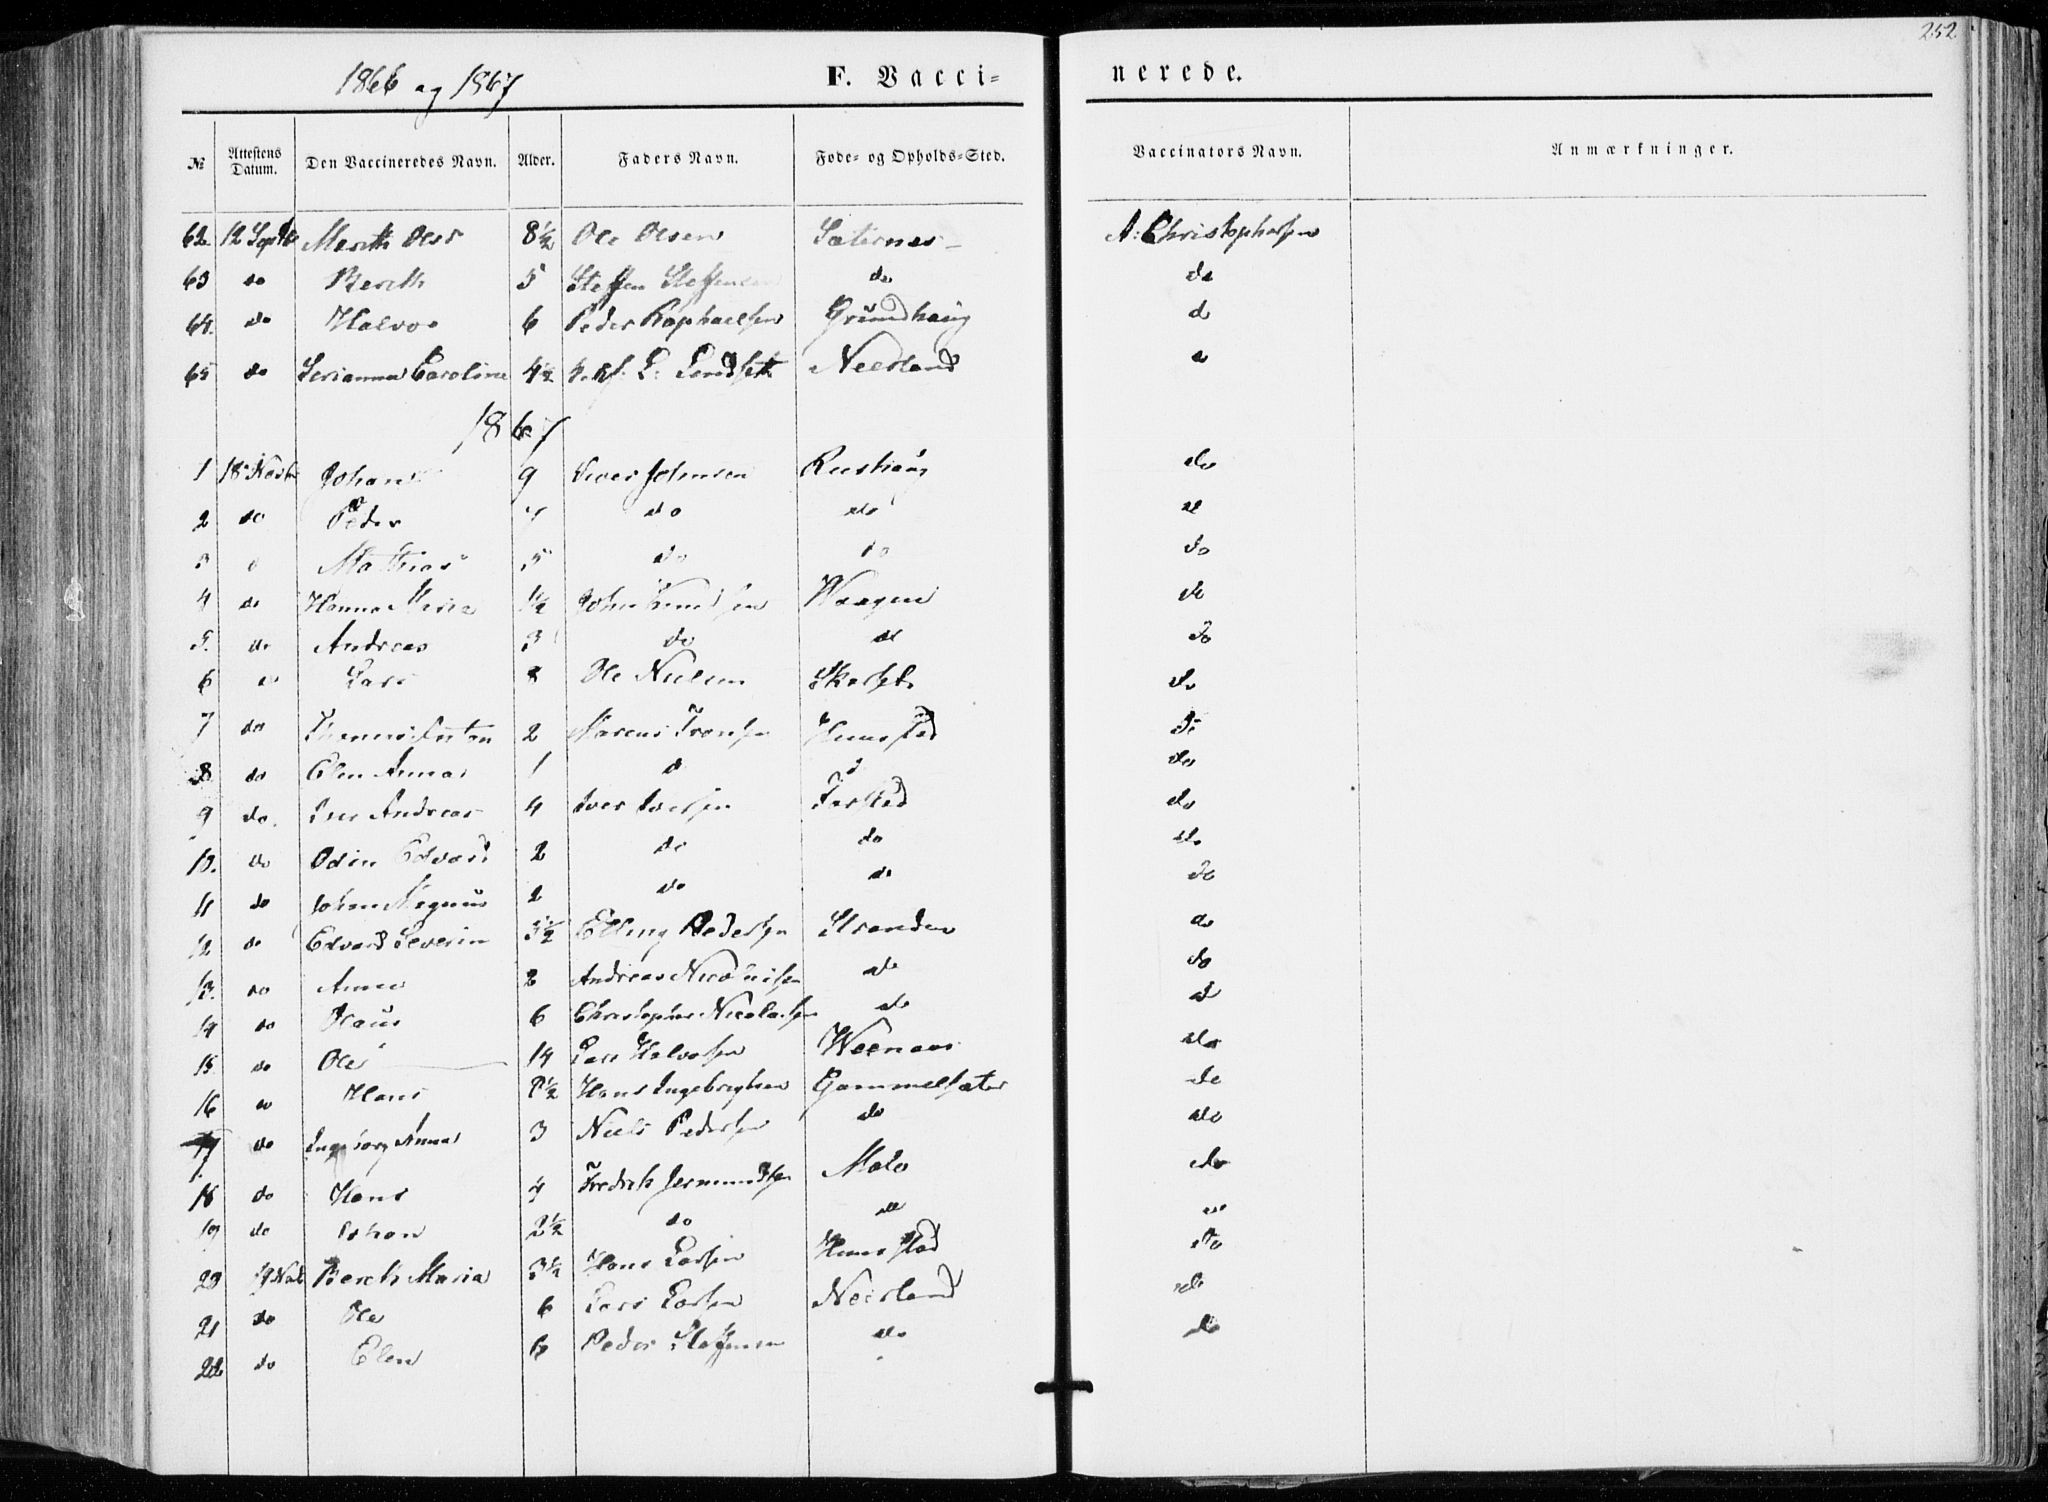 252
1866 og 1867
F. Vacci=
nerede.
№ Attestens Datum. Den Vaccineredes Navn. Alder. Faders Navn. Føde= og Opholds=Sted. Vaccinators Navn. Anmærkninger.
62 12 Septb Olsd 8½ Ole Olsen A: Christophersen
63 do Bereth 5 Steffen Steffensen do do
64. do Halvor 6 Peder Raphaelsen Grundhaug do
65 do Caroline 4½ Neerland
1867
1 18 Novbr Johan 9 Iver Johnsen Rushaug do
2 do Peder 7 do do do
3 Mathias 5 do do do
4 do Hanna Maria 1½ John Knudsen Waagen do
5. do Andreas 3 do do do
6 Lars 8 Ole Nielsen Skarset do
7 do 2 Marcus Hunstad do
8 do Elen Anna 1 do
9 do. Iver Andreas 4 Iver Iversen Farstad do
10. do Odin Edvard 2 do do do
11 do Johan Magnus 2 do do do
12 do Edvard Severin 3½ Elling Pedersen Stranden do
13. do Anne 2 Andreas Nicolaisen do do
14 do Olaus 6 Christopher Nicolaisen do
15 do Ole 14 Lars Halvorsen Weenaas do
16 Hans Hans Ingebregtsen Gammelsæter do
17 do Ingeborg Anna 3 Niels Pedersen do do
18 do Hans 4 Fredrik Jermundsen Malo do
19 do Johan 2½ do
20 19 Novb Bereth Maria 3½ Hans Larsen Hunstad do
21 do Ole 6 Lars Larsen Neerland do
22 do Elen 6 Peder Steffensen do do